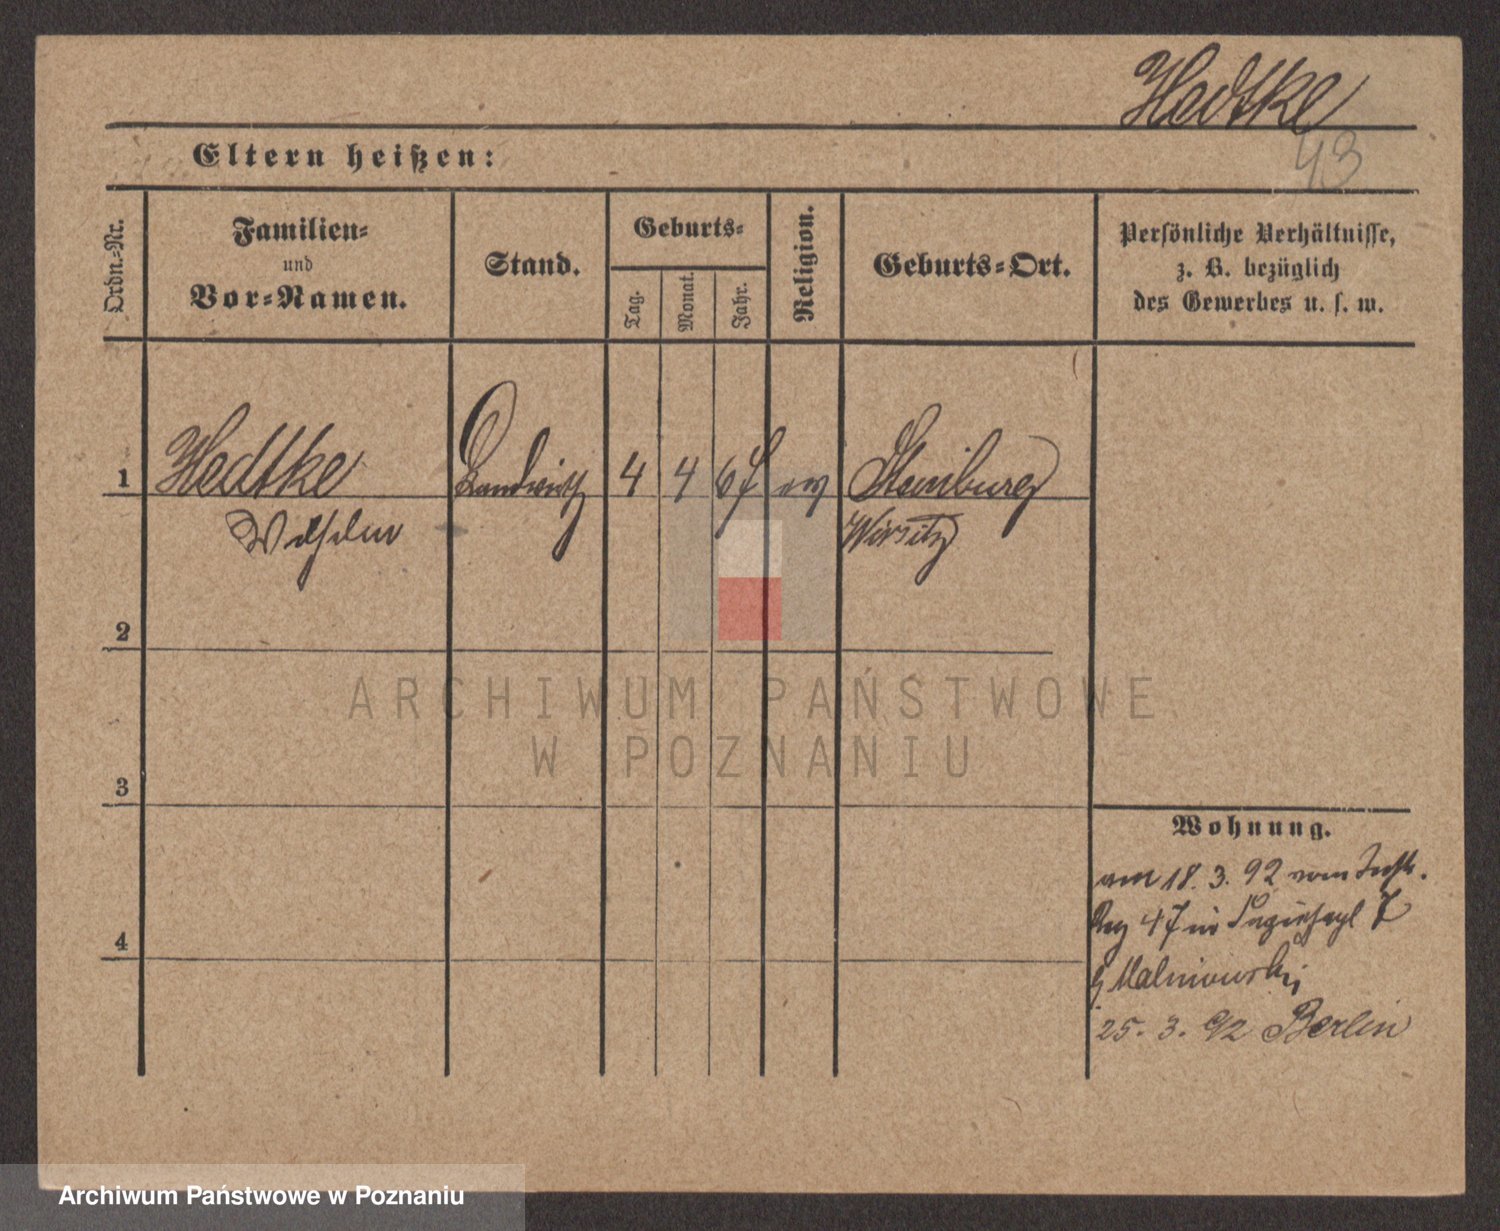 Hedtke
43
Eltern heißen:
Ordn.-Nr.
Familien-
und
Vor-Namen.
Stand.
Geburts-
Tag.
Monat.
Jahr.
Religion.
Geburts-Ort.
Persönliche Verhältnisse,
z. B. bezüglich
des Gewerbes u. s. w.
1
Hedtke
Landwirth
4
4
67
ev
Steinburg
Wilhelm
Wirsitz
2
3
4
Wohnung.
am 18. 3. 92 vom
Reg 47 in 7
b Malinowski
25. 3. 92 Berlin
ARCHIWUM PAŃSTWOWE
W POZNANIU
Archiwum Państwowe w Poznaniu